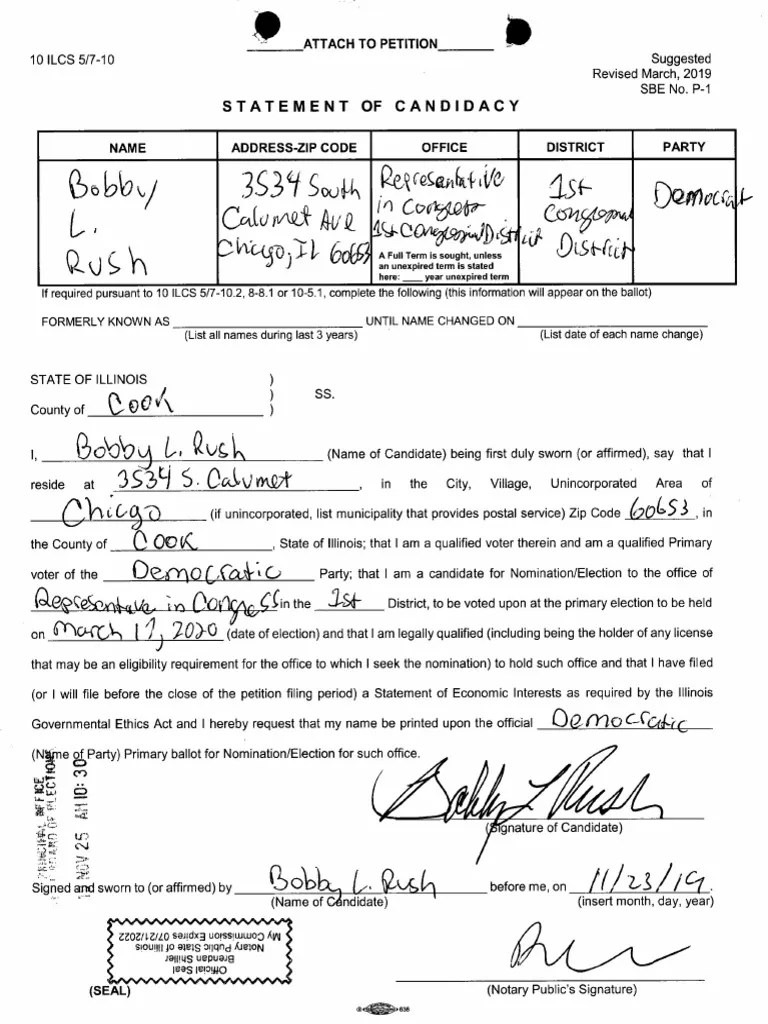 ATTACH TO PETITION
10 ILCS 5/7-10
Suggested
Revised March, 2019
SBE No. P-1
STATEMENT OF CANDIDACY
NAME ADDRESS-ZIP CODE OFFICE DISTRICT PARTY
Bobby
L.
Rush
3534 South
Calumet Ave
Chicgo, IL 60653
Representative
in Congress
1st Congressional District
A Full Term is sought, unless
an unexpired term is stated
here: ____ year unexpired term
1st
Congressional
District
Democrat
If required pursuant to 10 ILCS 5/7-10.2, 8-8.1 or 10-5.1, complete the following (this information will appear on the ballot)
FORMERLY KNOWN AS ____ UNTIL NAME CHANGED ON ____
(List all names during last 3 years) (List date of each name change)
STATE OF ILLINOIS )
) SS.
County of Cook )
I, Bobby L. Rush (Name of Candidate) being first duly sworn (or affirmed), say that I
reside at 3534 S. Calumet, in the City, Village, Unincorporated Area of
Chicgo (if unincorporated, list municipality that provides postal service) Zip Code 60653, in
the County of Cook, State of Illinois; that I am a qualified voter therein and am a qualified Primary
voter of the Democratic Party; that I am a candidate for Nomination/Election to the office of
Representative in Congress in the 1st District, to be voted upon at the primary election to be held
on March 17, 2020 (date of election) and that I am legally qualified (including being the holder of any license
that may be an eligibility requirement for the office to which I seek the nomination) to hold such office and that I have filed
(or I will file before the close of the petition filing period) a Statement of Economic Interests as required by the Illinois
Governmental Ethics Act and I hereby request that my name be printed upon the official Democratic
(Name of Party) Primary ballot for Nomination/Election for such office.
NOV 25 AM 10:30
Bobby L Rush
(Signature of Candidate)
Signed and sworn to (or affirmed) by Bobby L. Rush before me, on 11/23/19.
(Name of Candidate) (insert month, day, year)
Official Seal
Brendan Shiller
Notary Public State of Illinois
My Commission Expires 07/21/2022
(SEAL)
(Notary Public's Signature)